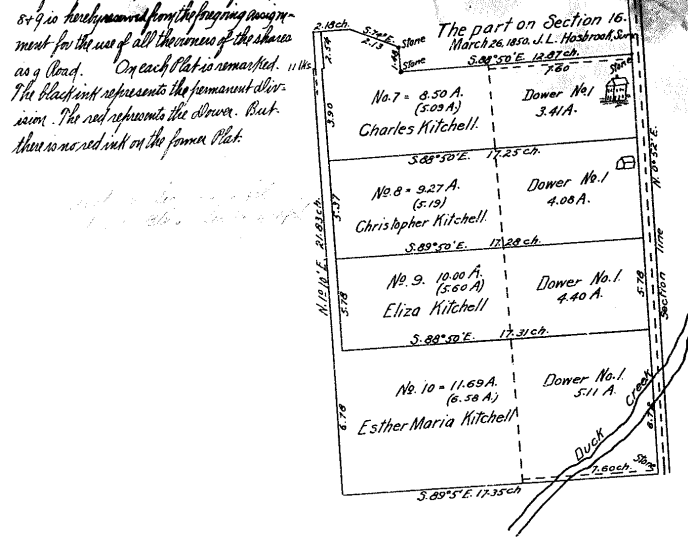 8+9 is hereby reserved from the foregoing assign-
ment for the use of all the owners of the shares
as a Road. On each Plat is remarked.
The black ink represents the permanent div-
ision. The red represents the Dower. But
there is no red ink on the former Plat.
The part on Section 16.
March 26, 1850. J. L. Hosbrook, Surv
2.18 ch.
S.70°E.
2.13
Stone
S.88°50'E. 12.87 ch.
7.60
Stone
2.54
11 Lks.
No. 7 = 8.50 A.
(5.09 A)
Charles Kitchell.
Dower No. 1
3.41 A.
3.90
S.88°50'E. 17.25 ch.
N. 0°52'E.
No. 8 = 9.27 A.
(5.19)
Christopher Kitchell.
Dower No. 1
4.08 A.
5.37
N. 1°10'E. 21.83 ch.
S.89°50'E. 17.28 ch.
No. 9. 10.00 A.
(5.60 A)
Eliza Kitchell
Dower No. 1.
4.40 A.
5.78
5.78
Section line
S.88°50'E. 17.31 ch.
No. 10 = 11.69 A.
(6.58 A.)
Esther Maria Kitchell
Dower No. 1.
5.11 A.
6.78
Duck Creek
Stone
7.60 ch.
S.89°5'E. 17.35 ch